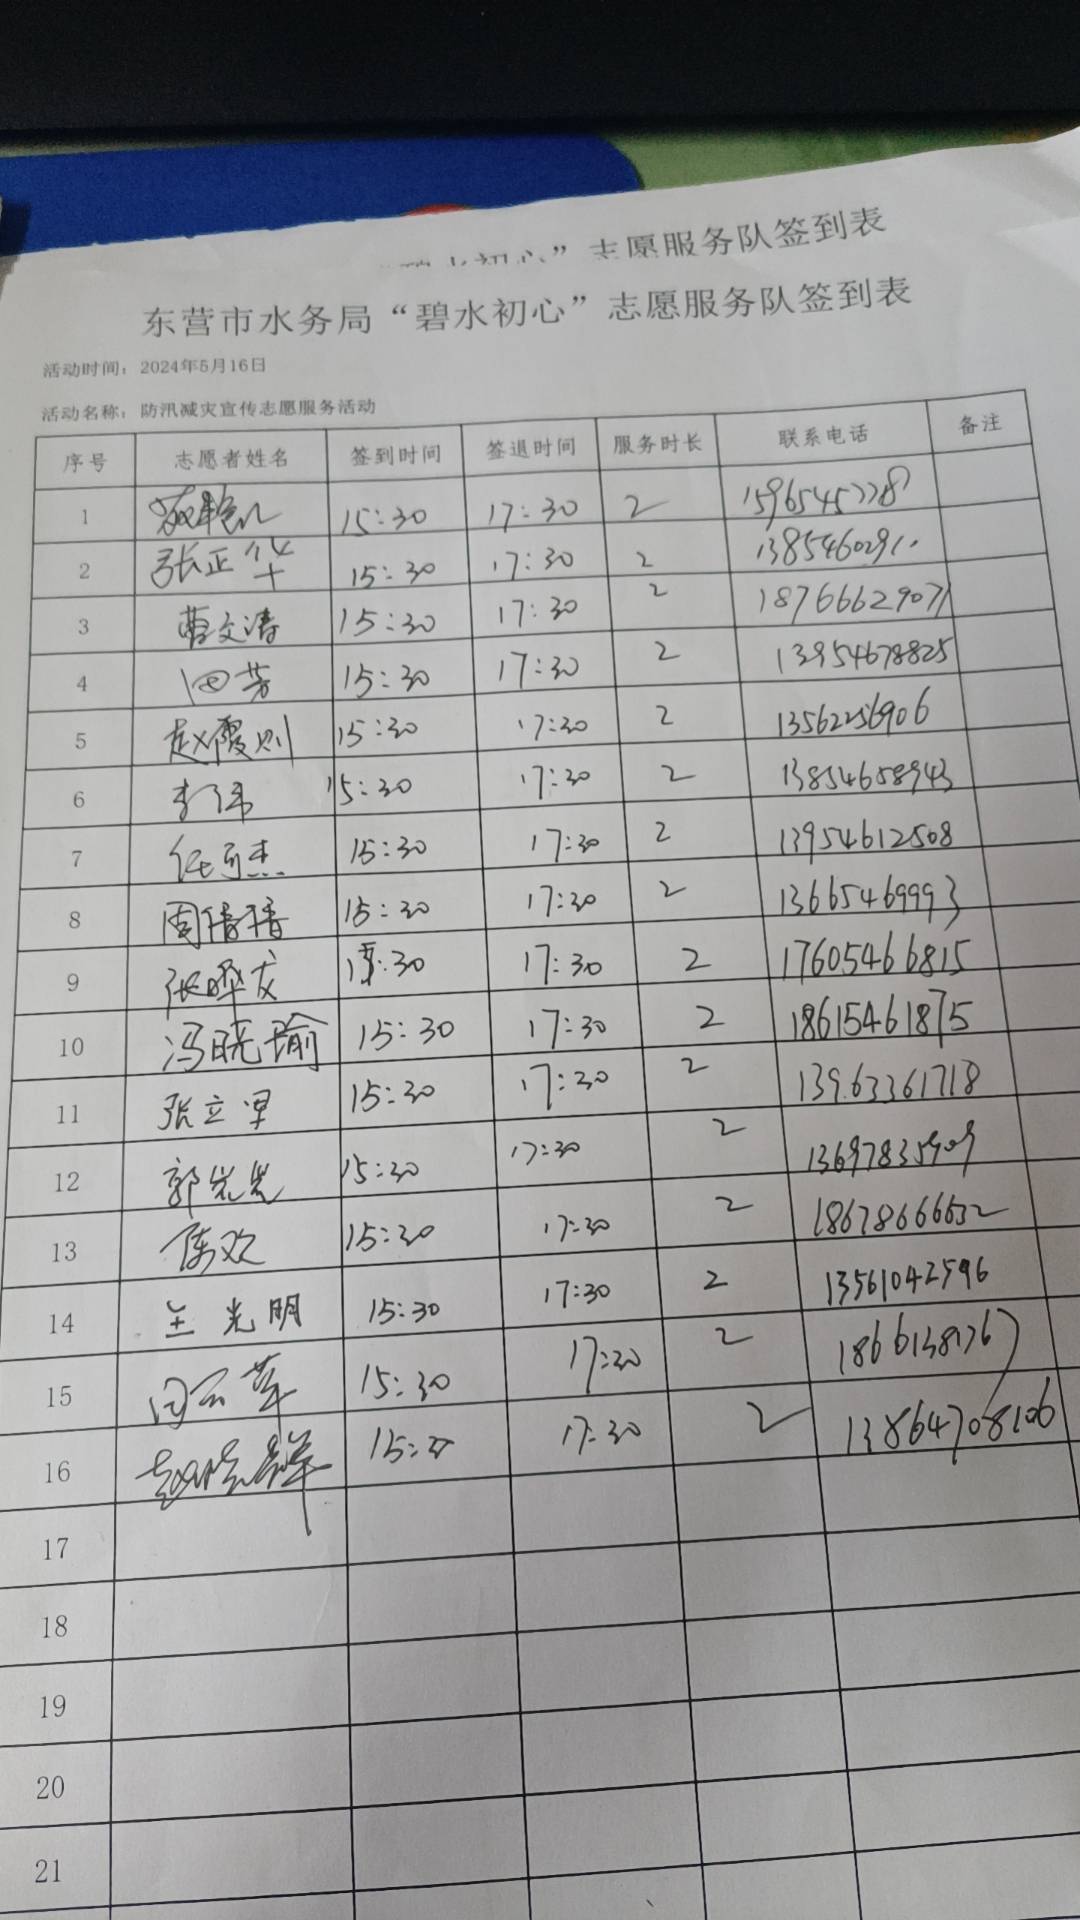 志愿服务队签到表
东营市水务局“碧水初心”志愿服务队签到表
活动时间：2024年5月16日
活动名称：防汛减灾宣传志愿服务活动
序号 志愿者姓名 签到时间 签退时间 服务时长 联系电话 备注
1 15:30 17:30 2
2 张正华 15:30 17:30 2
3 曹文涛 15:30 17:30 2 18766629071
4 田芳 15:30 17:30 2 13954678825
5 赵霞则 15:30 17:30 2 13562256906
6 李伟 15:30 17:30 2 13854658943
7 任可杰 15:30 17:30 2 13954612508
8 周倩倩 15:30 17:30 2 13665469993
9 张晔友 15:30 17:30 2 17605466815
10 冯晓瑜 15:30 17:30 2 18615461875
11 张立军 15:30 17:30 2 13963361718
12 郭岩岩 15:30 17:30 2 13697835909
13 陈欢 15:30 17:30 2 18678666652
14 王光明 15:30 17:30 2 13561042596
15 15:30 17:30 2
16 赵晓群 15:30 17:30 2 13864708106
17
18
19
20
21